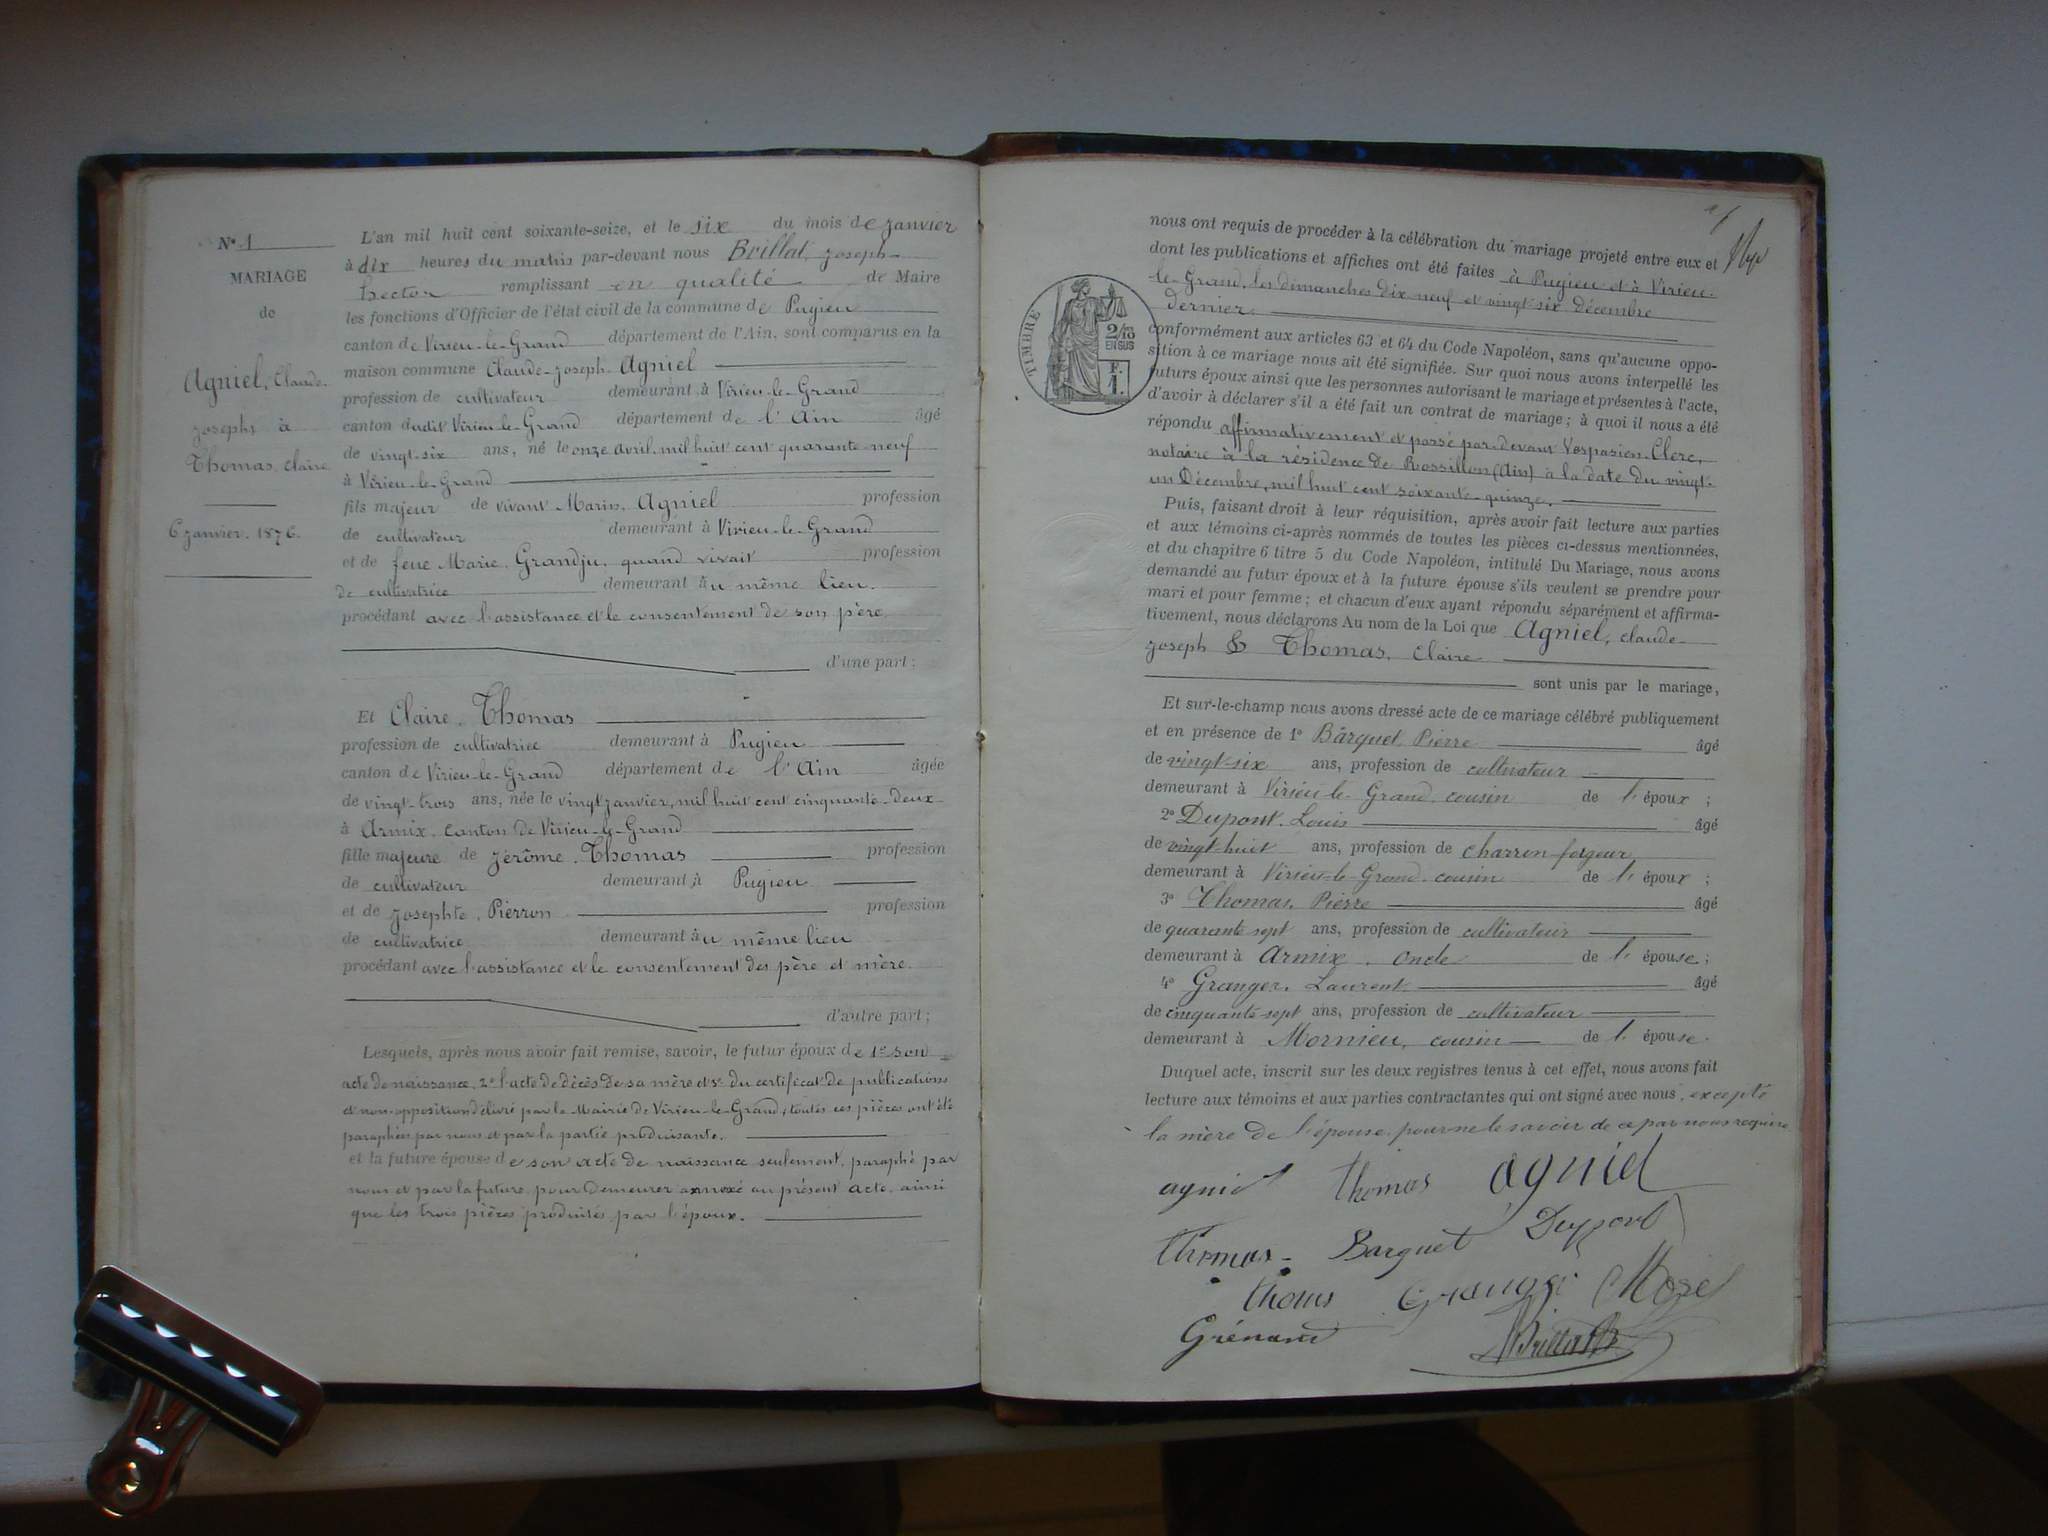 N° 1
MARIAGE
de
Agniel, Claude-
joseph à
Thomas, Claire
6 janvier. 1876.
L'an mil huit cent soixante-seize, et le six du mois de janvier
à dix heures du matin par-devant nous Brillat, joseph-
hector remplissant en qualité de Maire
les fonctions d'Officier de l'état civil de la commune de Pugieu
canton de Virieu-le-Grand département de l'Ain, sont comparus en la
maison commune Claude-joseph. Agniel
profession de cultivateur demeurant à Virieu-le-Grand
canton dudit Virieu-le-Grand département de l'Ain âgé
de vingt-six ans, né le onze avril, mil huit cent quarante neuf
à Virieu-le-Grand
fils majeur de vivant Marin, Agniel profession
de cultivateur demeurant à Virieu-le-Grand
et de feue Marie, Grandju, quand vivait profession
de cultivatrice demeurant au même lieu.
procédant avec l'assistance et le consentement de son père.
d'une part;
Et Claire. Thomas
profession de cultivatrice demeurant à Pugieu
canton de Virieu-le-Grand département de l'Ain âgée
de vingt-trois ans, née le vingt janvier, mil huit cent cinquante-deux
à Armix, canton de Virieu-le-Grand
fille majeure de jérôme. Thomas profession
de cultivateur demeurant à Pugieu
et de josephte. Pierron profession
de cultivatrice demeurant au même lieu
procédant avec l'assistance et le consentement des père et mère.
d'autre part;
Lesquels, après nous avoir fait remise, savoir, le futur époux de 1° son
acte de naissance, 2° l'acte de décès de sa mère et 3° du certificat de publications
et non-opposition délivré par la Mairie de Virieu-le-Grand; toutes ces pièces ont été
paraphées par nous et par la partie produisante.
et la future épouse de son acte de naissance seulement, paraphé par
nous et par la future, pour demeurer annexé au présent acte, ainsi
que les trois pièces produites par l'époux.
nous ont requis de procéder à la célébration du mariage projeté entre eux et
dont les publications et affiches ont été faites à Pugieu et à Virieu-
le-Grand, les dimanches dix neuf et vingt six décembre
dernier.
TIMBRE
2/10
EN SUS
F.
1.
conformément aux articles 63 et 64 du Code Napoléon, sans qu'aucune oppo-
sition à ce mariage nous ait été signifiée. Sur quoi nous avons interpellé les
futurs époux ainsi que les personnes autorisant le mariage et présentes à l'acte,
d'avoir à déclarer s'il a été fait un contrat de mariage; à quoi il nous a été
répondu affirmativement et passé par-devant Vespasien Clerc,
notaire à la résidence de Rossillon (Ain) à la date du vingt-
un Décembre, mil huit cent soixante-quinze.
Puis, faisant droit à leur réquisition, après avoir fait lecture aux parties
et aux témoins ci-après nommés de toutes les pièces ci-dessus mentionnées,
et du chapitre 6 titre 5 du Code Napoléon, intitulé Du Mariage, nous avons
demandé au futur époux et à la future épouse s'ils veulent se prendre pour
mari et pour femme; et chacun d'eux ayant répondu séparément et affirma-
tivement, nous déclarons Au nom de la Loi que Agniel, claude-
joseph & Thomas, Claire
sont unis par le mariage,
Et sur-le-champ nous avons dressé acte de ce mariage célébré publiquement
et en présence de 1° Barquet, Pierre âgé
de vingt-six ans, profession de cultivateur
demeurant à Virieu-le-Grand, cousin de l'époux;
2° Dupont, Louis âgé
de vingt-huit ans, profession de charron-forgeur
demeurant à Virieu-le-Grand, cousin de l'époux;
3° Thomas, Pierre âgé
de quarante sept ans, profession de cultivateur
demeurant à Armix, oncle de l'épouse;
4° Granger, Laurent âgé
de cinquante-sept ans, profession de cultivateur
demeurant à Mornieu, cousin de l'épouse.
Duquel acte, inscrit sur les deux registres tenus à cet effet, nous avons fait
lecture aux témoins et aux parties contractantes qui ont signé avec nous, excepté
la mère de l'épouse, pour ne le savoir de ce par nous requise
agniel Thomas agniel
Thomas Barquet Dupont
Thomas Granger Mozet
Grénand Brillat